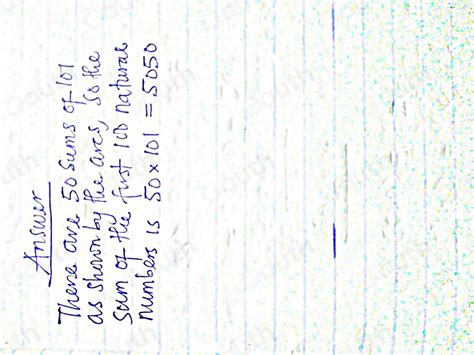 Answer
There are 50 sums of 101
as shown by the arcs, so the
sum of the first 100 natural
numbers is 50 × 101 = 5050